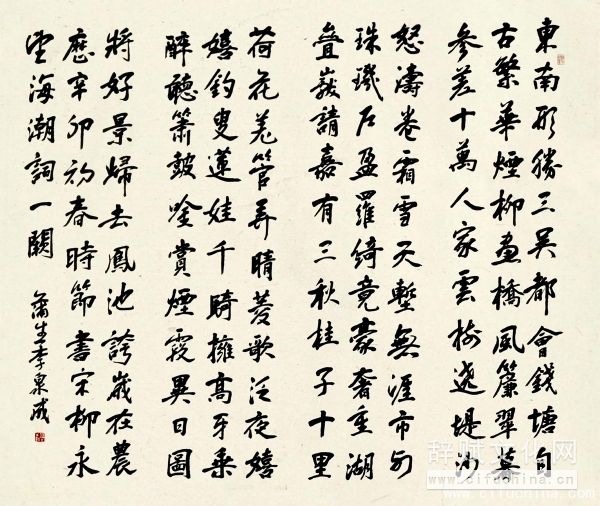 東南形勝三吳都會錢塘自
古繁華煙柳畫橋風簾翠幕
參差十萬人家雲樹遶堤沙
怒濤卷霜雪天塹無涯市列
珠璣戶盈羅綺竟豪奢重湖
疊巘請嘉有三秋桂子十里
荷花羌管弄晴菱歌泛夜嬉
嬉釣叟蓮娃千騎擁高牙乘
醉聽簫鼓吟賞煙霞異日圖
將好景歸去鳳池誇歲在農
歷辛卯初春時節書宋柳永
望海潮詞一闋 蒲生李泉成
辞赋文化网
www.cifuchina.com